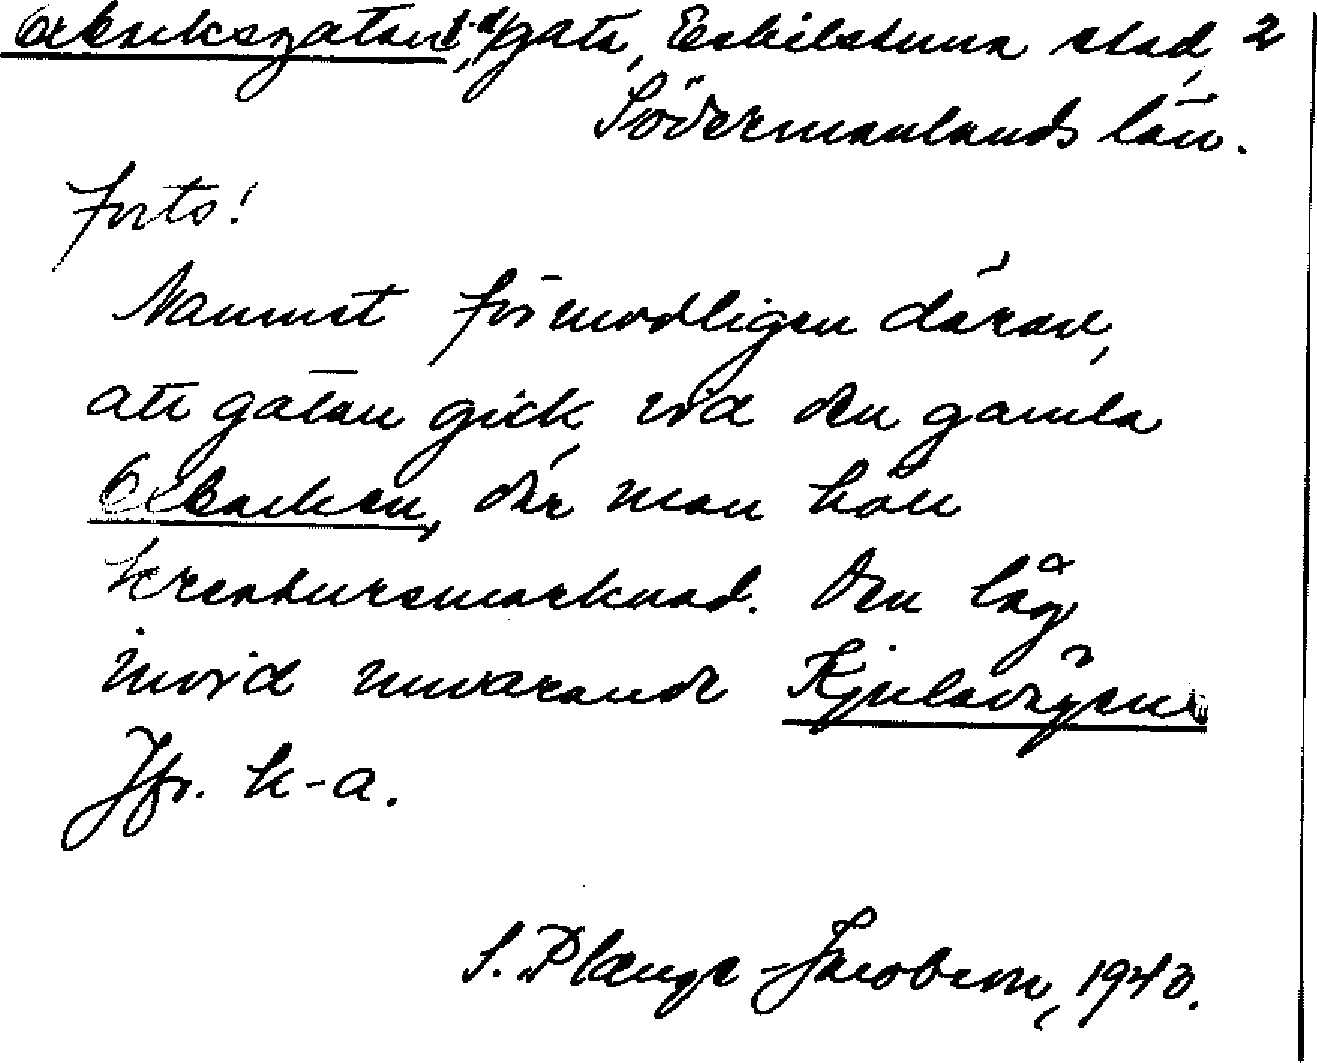 Oxbacksgatan, f.d. gata, Eskilstuna stad, 2
Södermanlands län.
Forts!
Namnet förmodligen därav,
att gatan gick vid den gamla
Oxbacken, där man höll
kreatursmarknad. Den låg
invid nuvarande Kjulavägen.
Jfr. k-a.
S. Plænge-Jacobson, 1940.